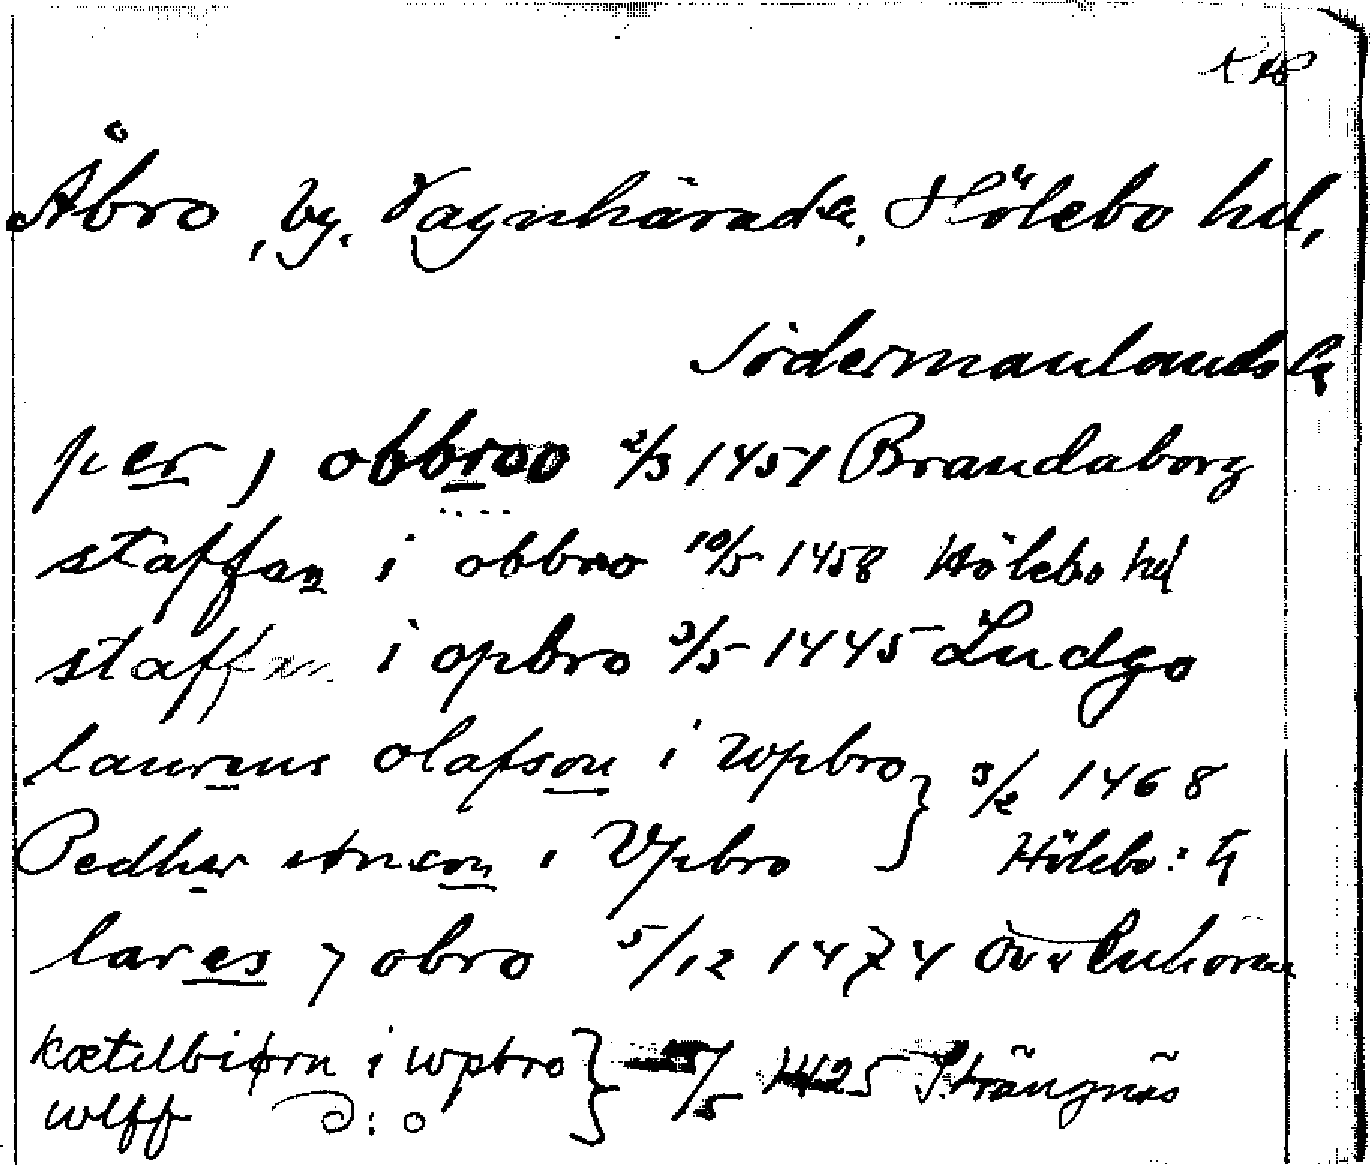 Åbro, by, Vagnhärads sn, Hölebo hd,
Södermanlands lä
per j obbroo 2/3 1451 Brandaborg
staffan i obbro 10/5 1458 Hölebo hd
staffan i opbro 3/5 1445 Ludgo
laurens olafson i wpbro } 3/2 1468
Pedher i Vpbro Hölebo:
lares j obro 5/12 1474 Öv Enhörna
kætilbiørn i wpbro } /5 1425 Strängnäs
wlff D:o